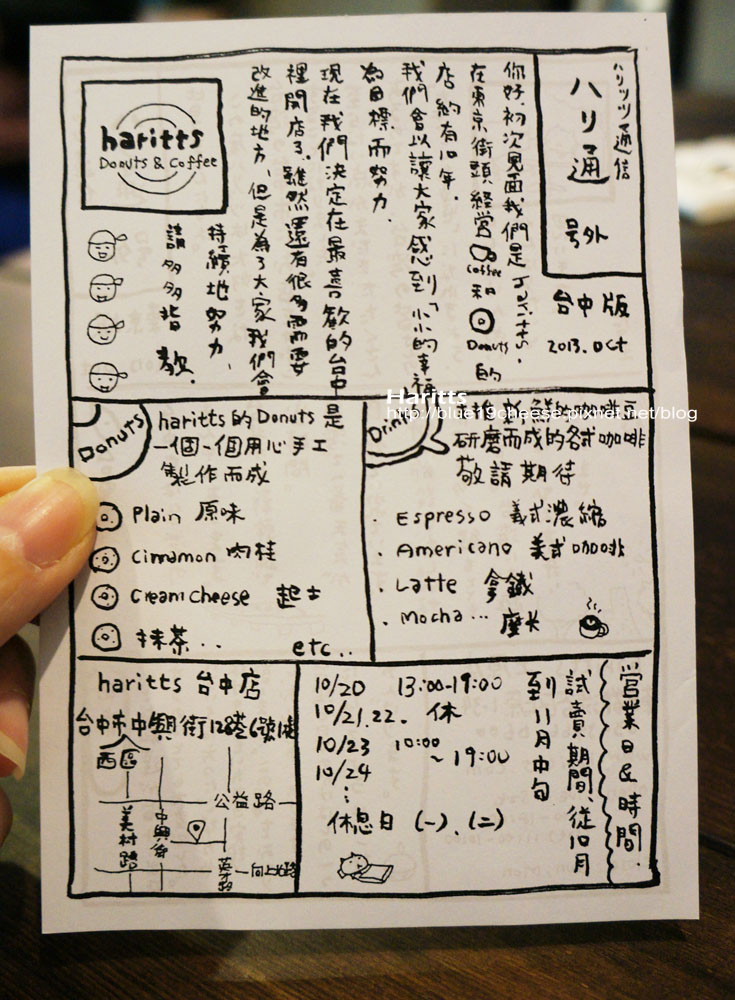 ハリッツ通信
ハリ通
号外
台中版
2013.Oct
你好，初次見面我們是haritts。
在東京街頭經營coffee和Donuts的
店約有10年。
我們會以讓大家感到「小小的幸福
為目標而努力.
現在我們決定在最喜歡的台中
裡開店了.雖然還有很多需要
改進的地方,但是為了大家我們會
持續地努力,
請多多指教.
haritts
Donuts & Coffee
Donuts
haritts的Donuts是
一個一個用心手工
製作而成
Plain 原味
Cinnamon 肉桂
Cream cheese 起士
抹茶..
etc..
Drink
新鮮的咖啡豆
研磨而成的各式咖啡
敬請期待
. Espresso 義式濃縮
. Americano 美式咖啡
. Latte 拿鐵
. Mocha... 摩卡
Haritts
http://blue19cheese.pixnet.net/blog
haritts 台中店
台中市中興街128巷6號1樓
西區
公益路
美村路
中興街
英才路
向上北路
營業日&時間.
試賣期間、從10月
到11月中旬
10/20 13:00-19:00
10/21.22. 休
10/23 10:00
~19:00
10/24
⋮
休息日 (一)、(二)